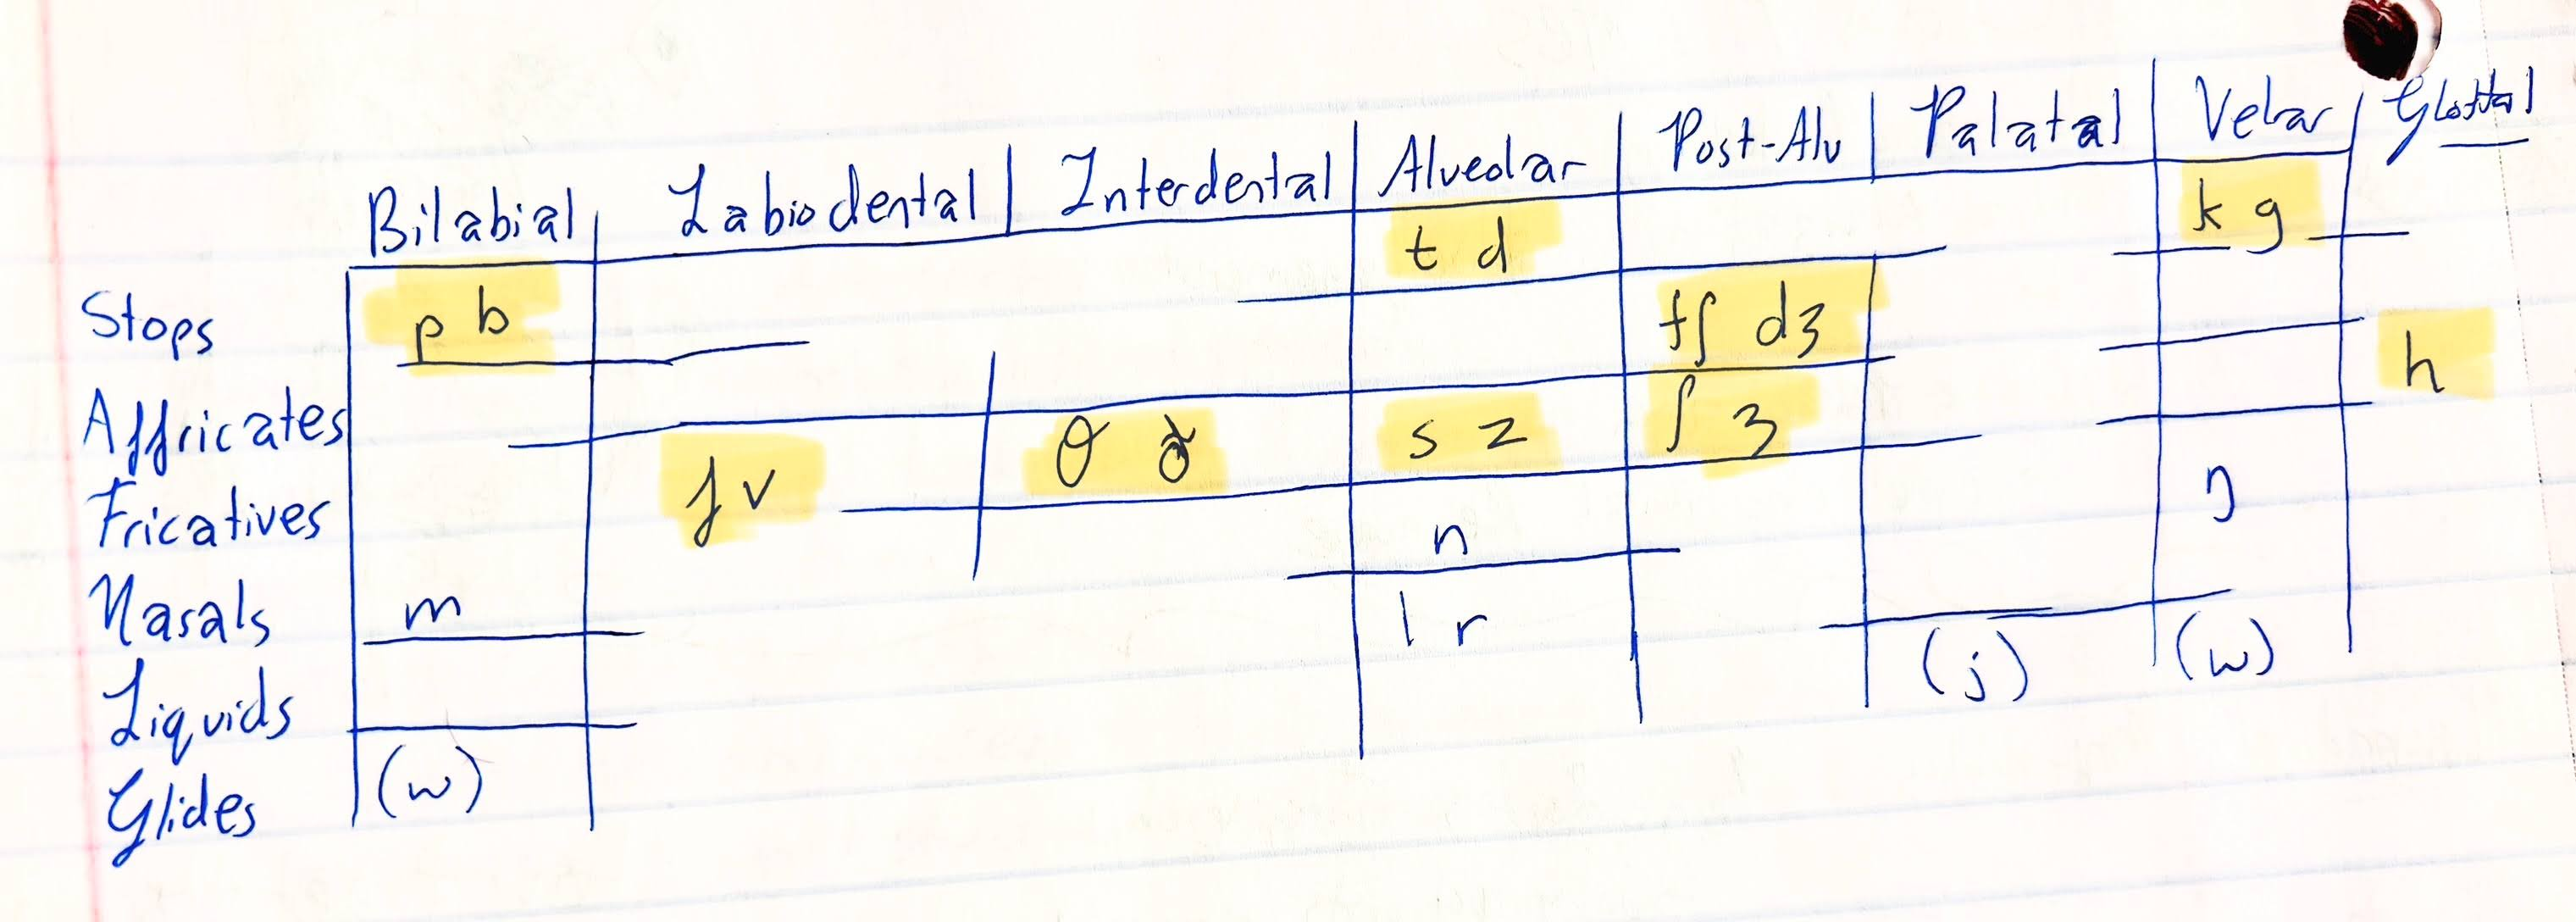 Bilabial Labiodental Interdental Alveolar Post-Alv Palatal Velar Glottal
Stops p b t d k g
Affricates tʃ dʒ
Fricatives f v θ ð s z ʃ ʒ h
Nasals m n ŋ
Liquids l r
Glides (w) (j) (w)